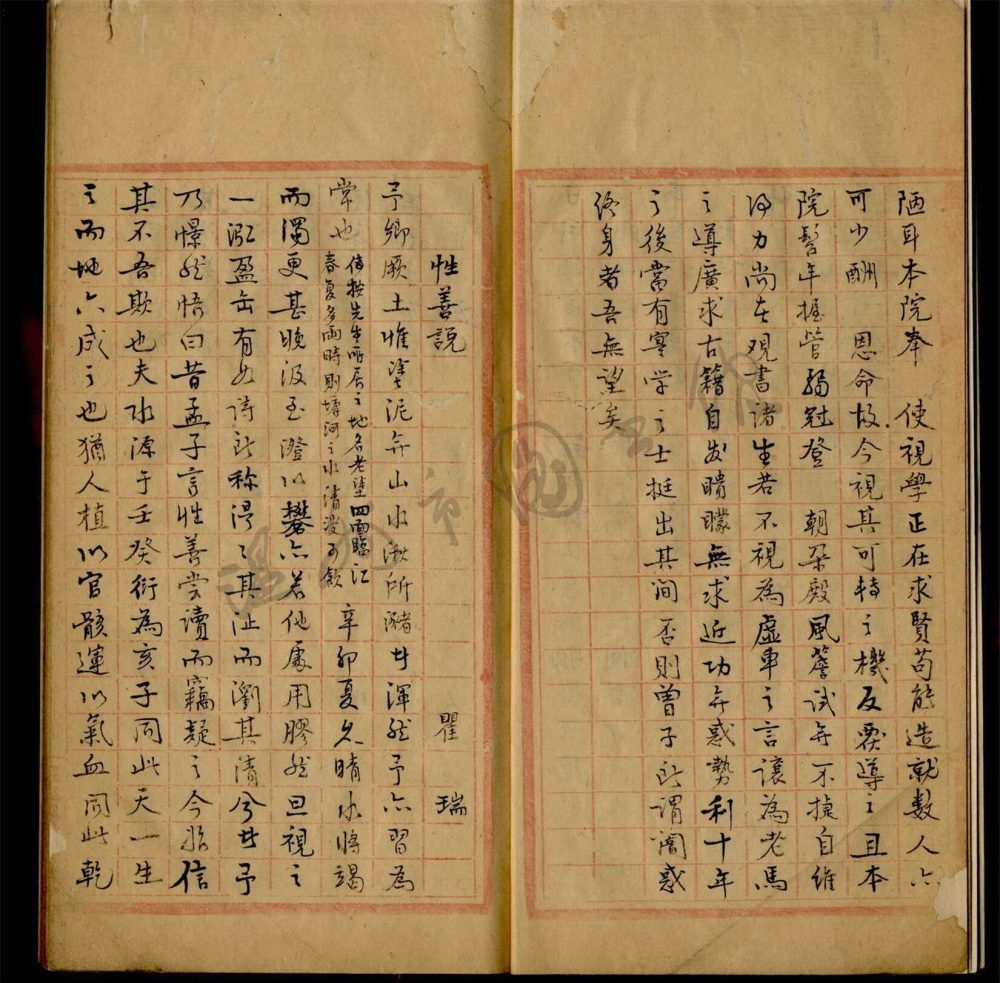 陋耳本院奉 使視學正在求賢苟能造就数人亦
可少酬 恩命故今視其可轉之機反覆導之且本
院髫年握管弱冠登 朝朵殿風簷試無不捷自維
得力尚在觀書諸生若不視為虛車之言讓為老馬
之導廣求古籍自发聵矇無求近功無惑勢利十年
之後當有寔学之士挺出其间否則曾子所谓阘惑
终身者吾無望矣
性善說 瞿瑞
予鄉厥土惟塗泥無山水潄所瀦甘渾然予亦習為
常也
傍按先生所居之地名老塗四面臨江
春夏多雨時則塼河之水清漫可飲
辛卯夏久晴水將竭
而濁更甚晚汲至澄以礬亦若他處用膠然旦視之
一泓盈缶有如诗所称湜湜其沚而瀏其清兮甘予
乃憬然悟曰昔孟子言性善尝讀而竊疑之今始信
其不吾欺也夫水源于壬癸衍為亥子同此天一生
之而地六成之也猶人植以官骸運以氣血同此乾
温州市圖書館